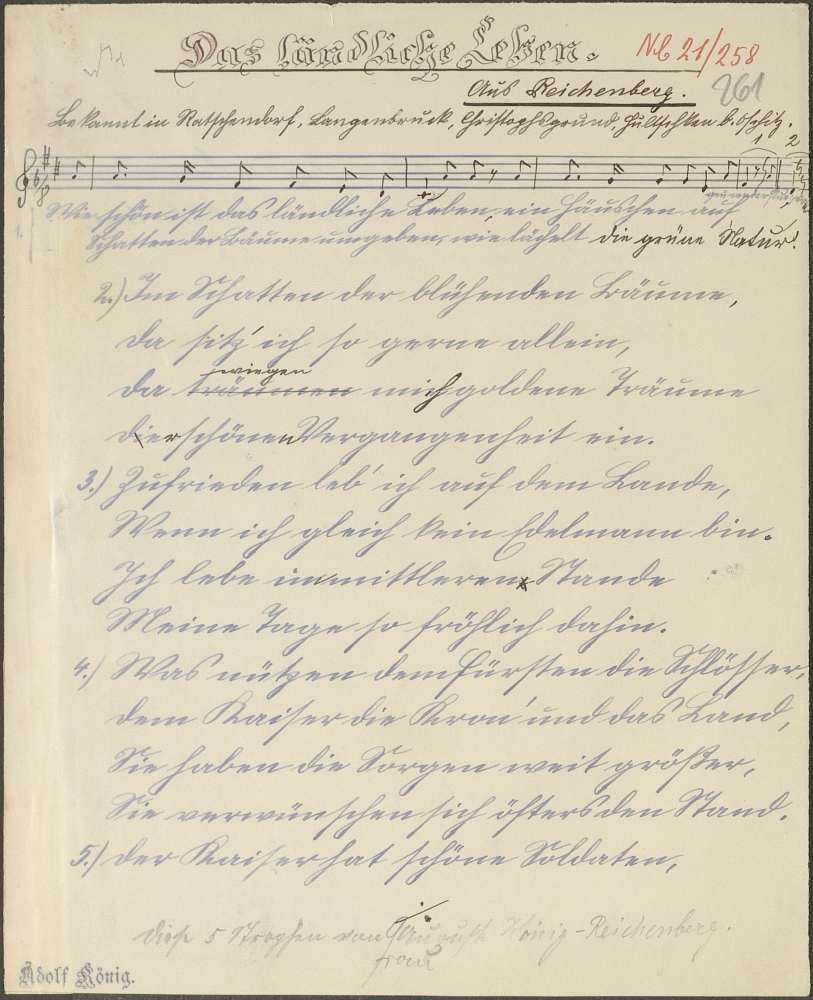 Das ländliche Leben.
Nb 21/258
Aus Reichenberg.
261
Bekannt in Ratschendorf, Langenbruck, Christophsgrund, Hultschken b. Oschitz.
1 2
6/8
Wie schön ist das ländliche Leben, ein Häuschen auf
1. Schatten der Bäume umgeben, wie lächelt die grüne Natur!
2.) Im Schatten der blühenden Bäume,
da sitz' ich so gerne allein,
wiegen
da träumen mich goldene Träume
dier schönen Vergangenheit ein.
3.) Zufrieden leb' ich auf dem Lande,
Wenn ich gleich kein Edelmann bin.
Ich lebe im mittleren Stande
Meine Tage so fröhlich dahin.
4.) Was nützen dem Fürsten die Schlösser,
dem Kaiser die Kron' und das Land,
Sie haben die Sorgen weit größer,
Sie verwünschen sich öfters den Stand.
5.) der Kaiser hat schöne Soldaten,
diese 5 Strophen von August König-Reichenberg.
Frau
Adolf König.